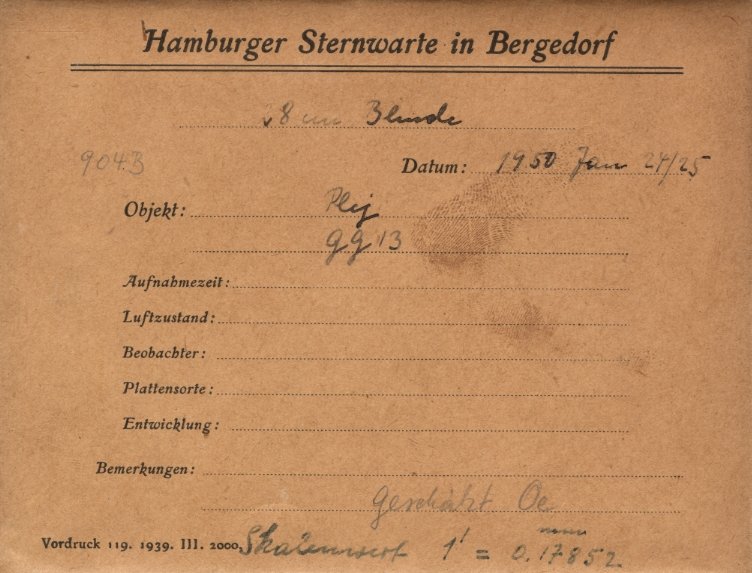 Hamburger Sternwarte in Bergedorf
28 cm Blende
904B
Datum: 1950 Jan 24/25
Objekt: Plej
GG 13
Aufnahmezeit:
Luftzustand:
Beobachter:
Plattensorte:
Entwicklung:
Bemerkungen:
Geschätzt Oe
Vordruck 119. 1939. III. 2000. Skalenwert 1' = 0.17852 mm